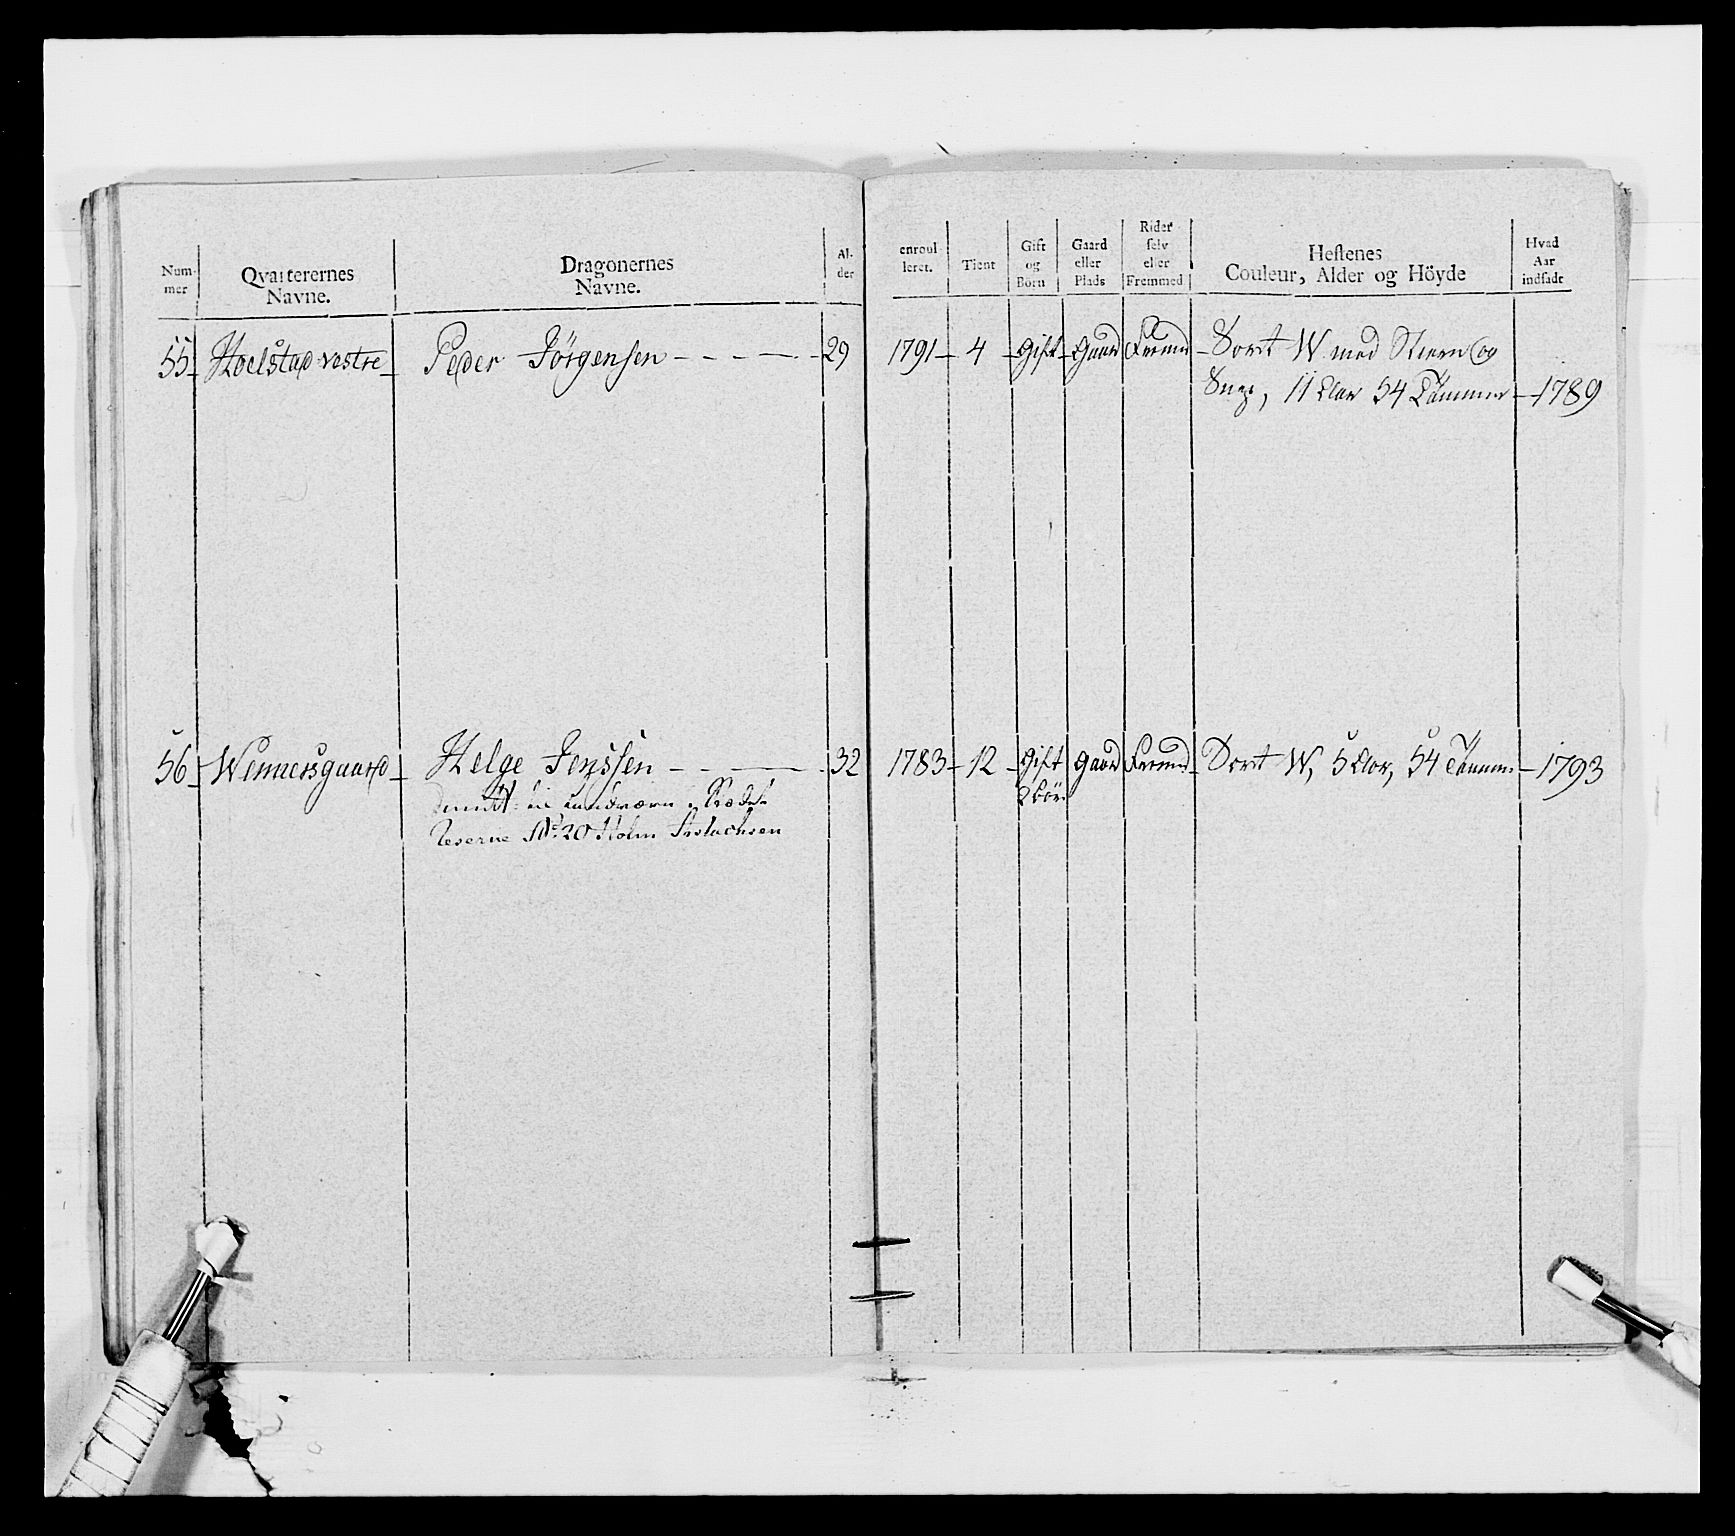 Num-
mer
Qvarterernes
Navne.
Dragonernes
Navne.
Al-
der
enroul
leret.
Tient
Gift
og
Börn
Gaard
eller
Plads
Rider
selv
eller
Fremmed
Hestenes
Couleur, Alder og Höyde
Hvad
Aar
indsadt
55 Hoelstad vestre Peder Jörgensen - - - - 29 1791 - 4 - Gift Gaard Fremd - Sort W med Stiern og
Snep, 11 Aar 54 Tommer - 1789
56 Wennersgaard Helge Jenssen - - - 32 1783 - 12 - Gift Gaard Fremd - Sort W, 5 Aar, 54 Tommer - 1793
2 börn
landværn
Reserve No 20 Holm